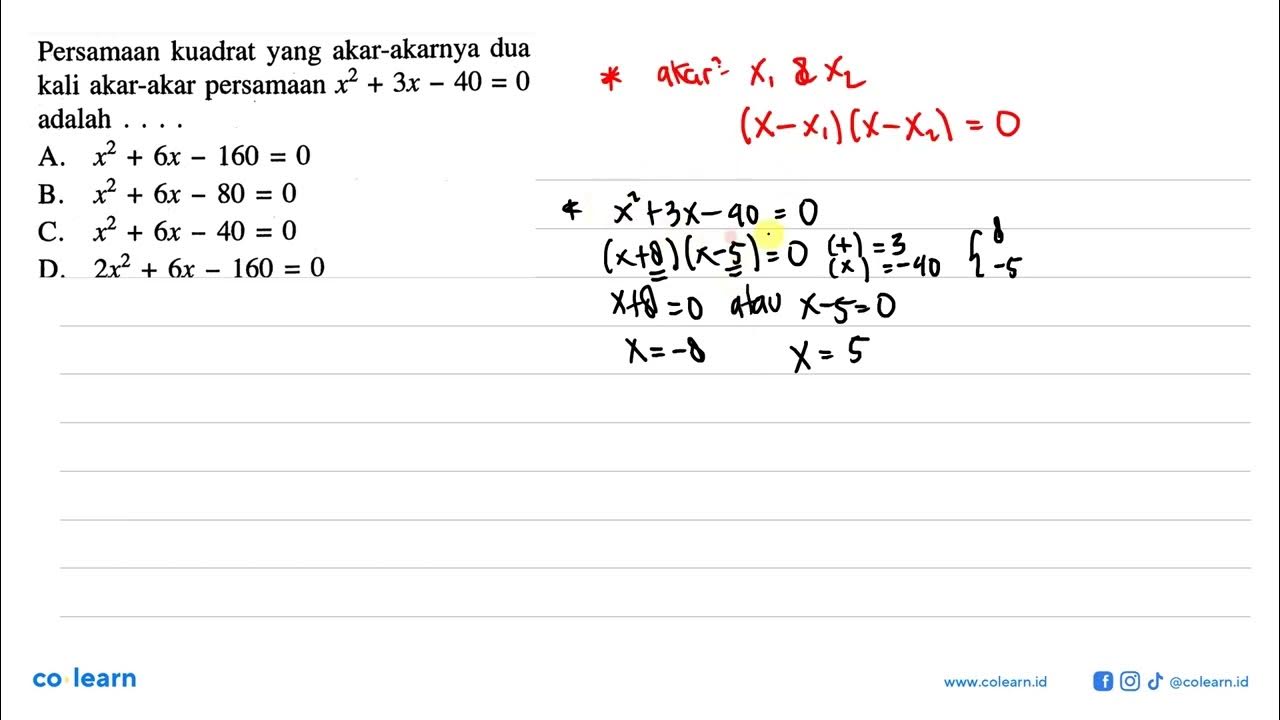 Persamaan kuadrat yang akar-akarnya dua
kali akar-akar persamaan x² + 3x − 40 = 0
adalah . . . .
A. x² + 6x − 160 = 0
B. x² + 6x − 80 = 0
C. x² + 6x − 40 = 0
D. 2x² + 6x − 160 = 0
* akar²- x₁ & x₂
(x-x₁)(x-x₂) = 0
* x²+3x-40 = 0
(x+8)(x-5)=0 (+) = 3 { 8
(x) = -40 -5
x+8=0 atau x-5=0
x=-8 x=5
co learn
www.colearn.id
@colearn.id